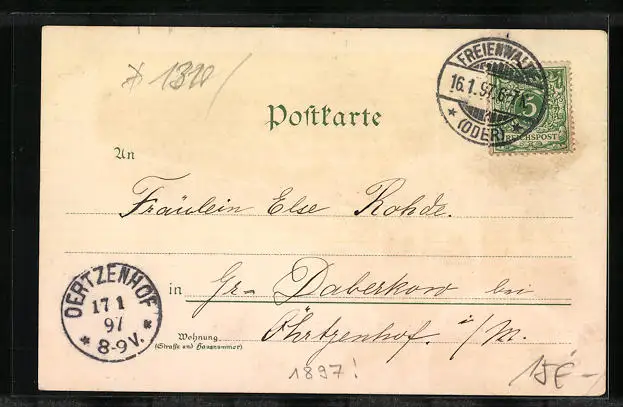 * 1320/
Postkarte
FREIENWALDE
16.1.97.6-7N.
* (ODER) *
5
REICHSPOST
An
Fräulein Else Rohde.
in Gr- Daberkow bei
Wohnung
(Straße und Hausnummer)
Öhrtzenhof. i/M.
OERTZENHOF
17 1
97
* 8-9V. *
1897!
15€-